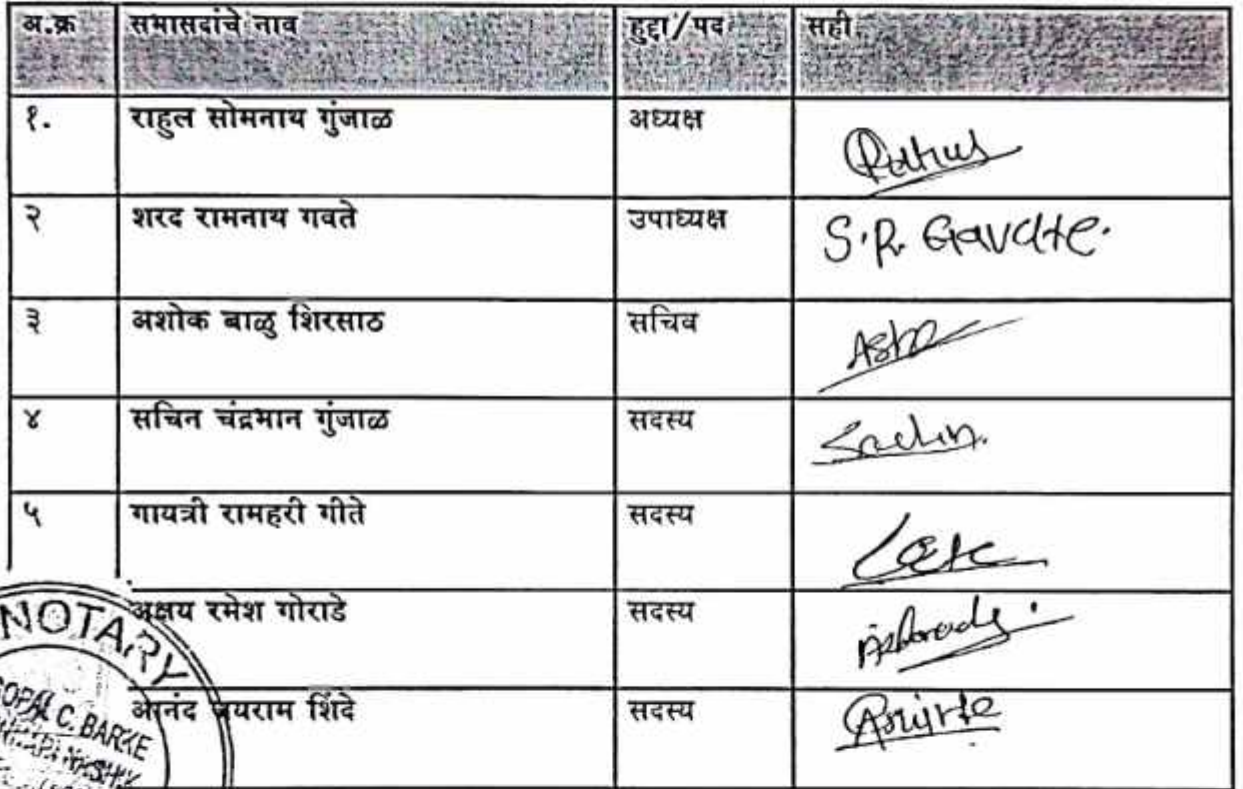 अ.क्र सभासदांचे नाव हुद्दा/पद सही
१. राहुल सोमनाथ गुंजाळ अध्यक्ष Rahul
२ शरद रामनाथ गवते उपाध्यक्ष S.R. Gavate.
३ अशोक बाळु शिरसाठ सचिव
४ सचिन चंद्रभान गुंजाळ सदस्य Sachin.
५ गायत्री रामहरी गीते सदस्य
अक्षय रमेश गोराडे सदस्य
आनंद जयराम शिंदे सदस्य
NOTARY
GOPAL C. BARKE